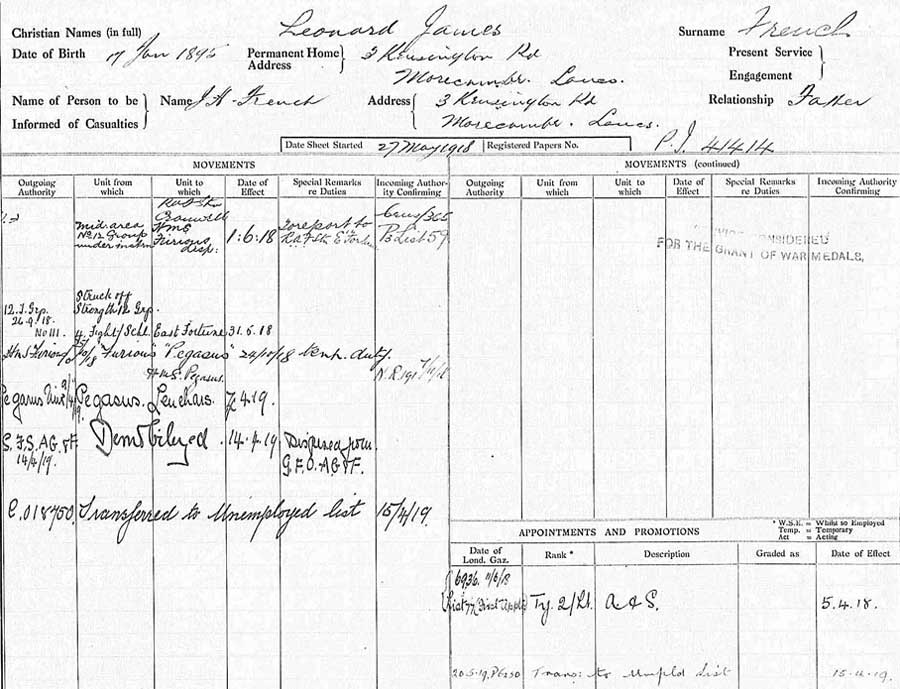 Christian Names (in full) Leonard James Surname French
Date of Birth Jan Permanent Home Address 3 Kensington Rd Present Service
Morecambe. Lancs. Engagement
Name of Person to be Informed of Casualties Name French Address 3 Kensington Rd Relationship Father
Morecambe. Lancs.
Date Sheet Started 27 May 1918 Registered Papers No. P.I. 41414
MOVEMENTS
Outgoing Authority Unit from which Unit to which Date of Effect Special Remarks re Duties Incoming Authority Confirming
Cranwell
Mid. area HMS
No 12 Group Furious 1.6.18 To report to
under instn Disp. B List 59
Struck off
12.T.Grp. Strength 12 Grp.
26.9.18.
No 111. 4. Fight/Schl. East Fortune 31.5.18
HMS Furious "Furious" "Pegasus" 24/10/18
HMS. Pegasus.
Pegasus Pegasus. 4.19.
S.F.S. AG & F Demobilyzed 14.4.19 Dispersed from
14/4/19. G.F.O. AG & F.
C.018750. Transferred to Unemployed list 15/4/19.
MOVEMENTS (continued)
Outgoing Authority Unit from which Unit to which Date of Effect Special Remarks re Duties Incoming Authority Confirming
CONSIDERED
FOR THE GRANT OF WAR MEDALS,
APPOINTMENTS AND PROMOTIONS
* W.S.E. = Whilst so Employed
Temp. = Temporary
Act = Acting
Date of Lond. Gaz. Rank * Description Graded as Date of Effect
6936 11/6/18
Ty. 2/Lt. A & S. 5.4.18.
20.5.19. Trans: to Unempld List 15.4.19.